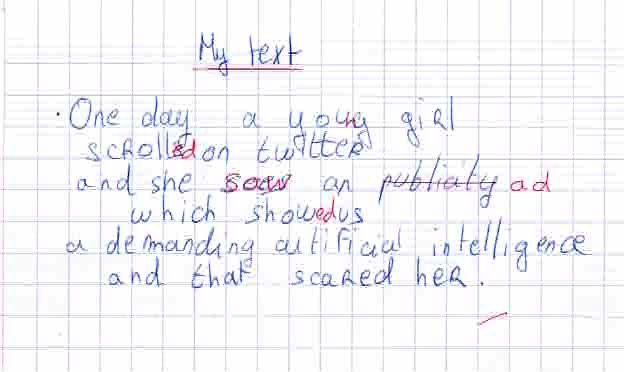 My text
· One day a young girl
scrolled on twitter
and she saw an publicity ad
which showed us
a demanding artificial intelligence
and that scared her.